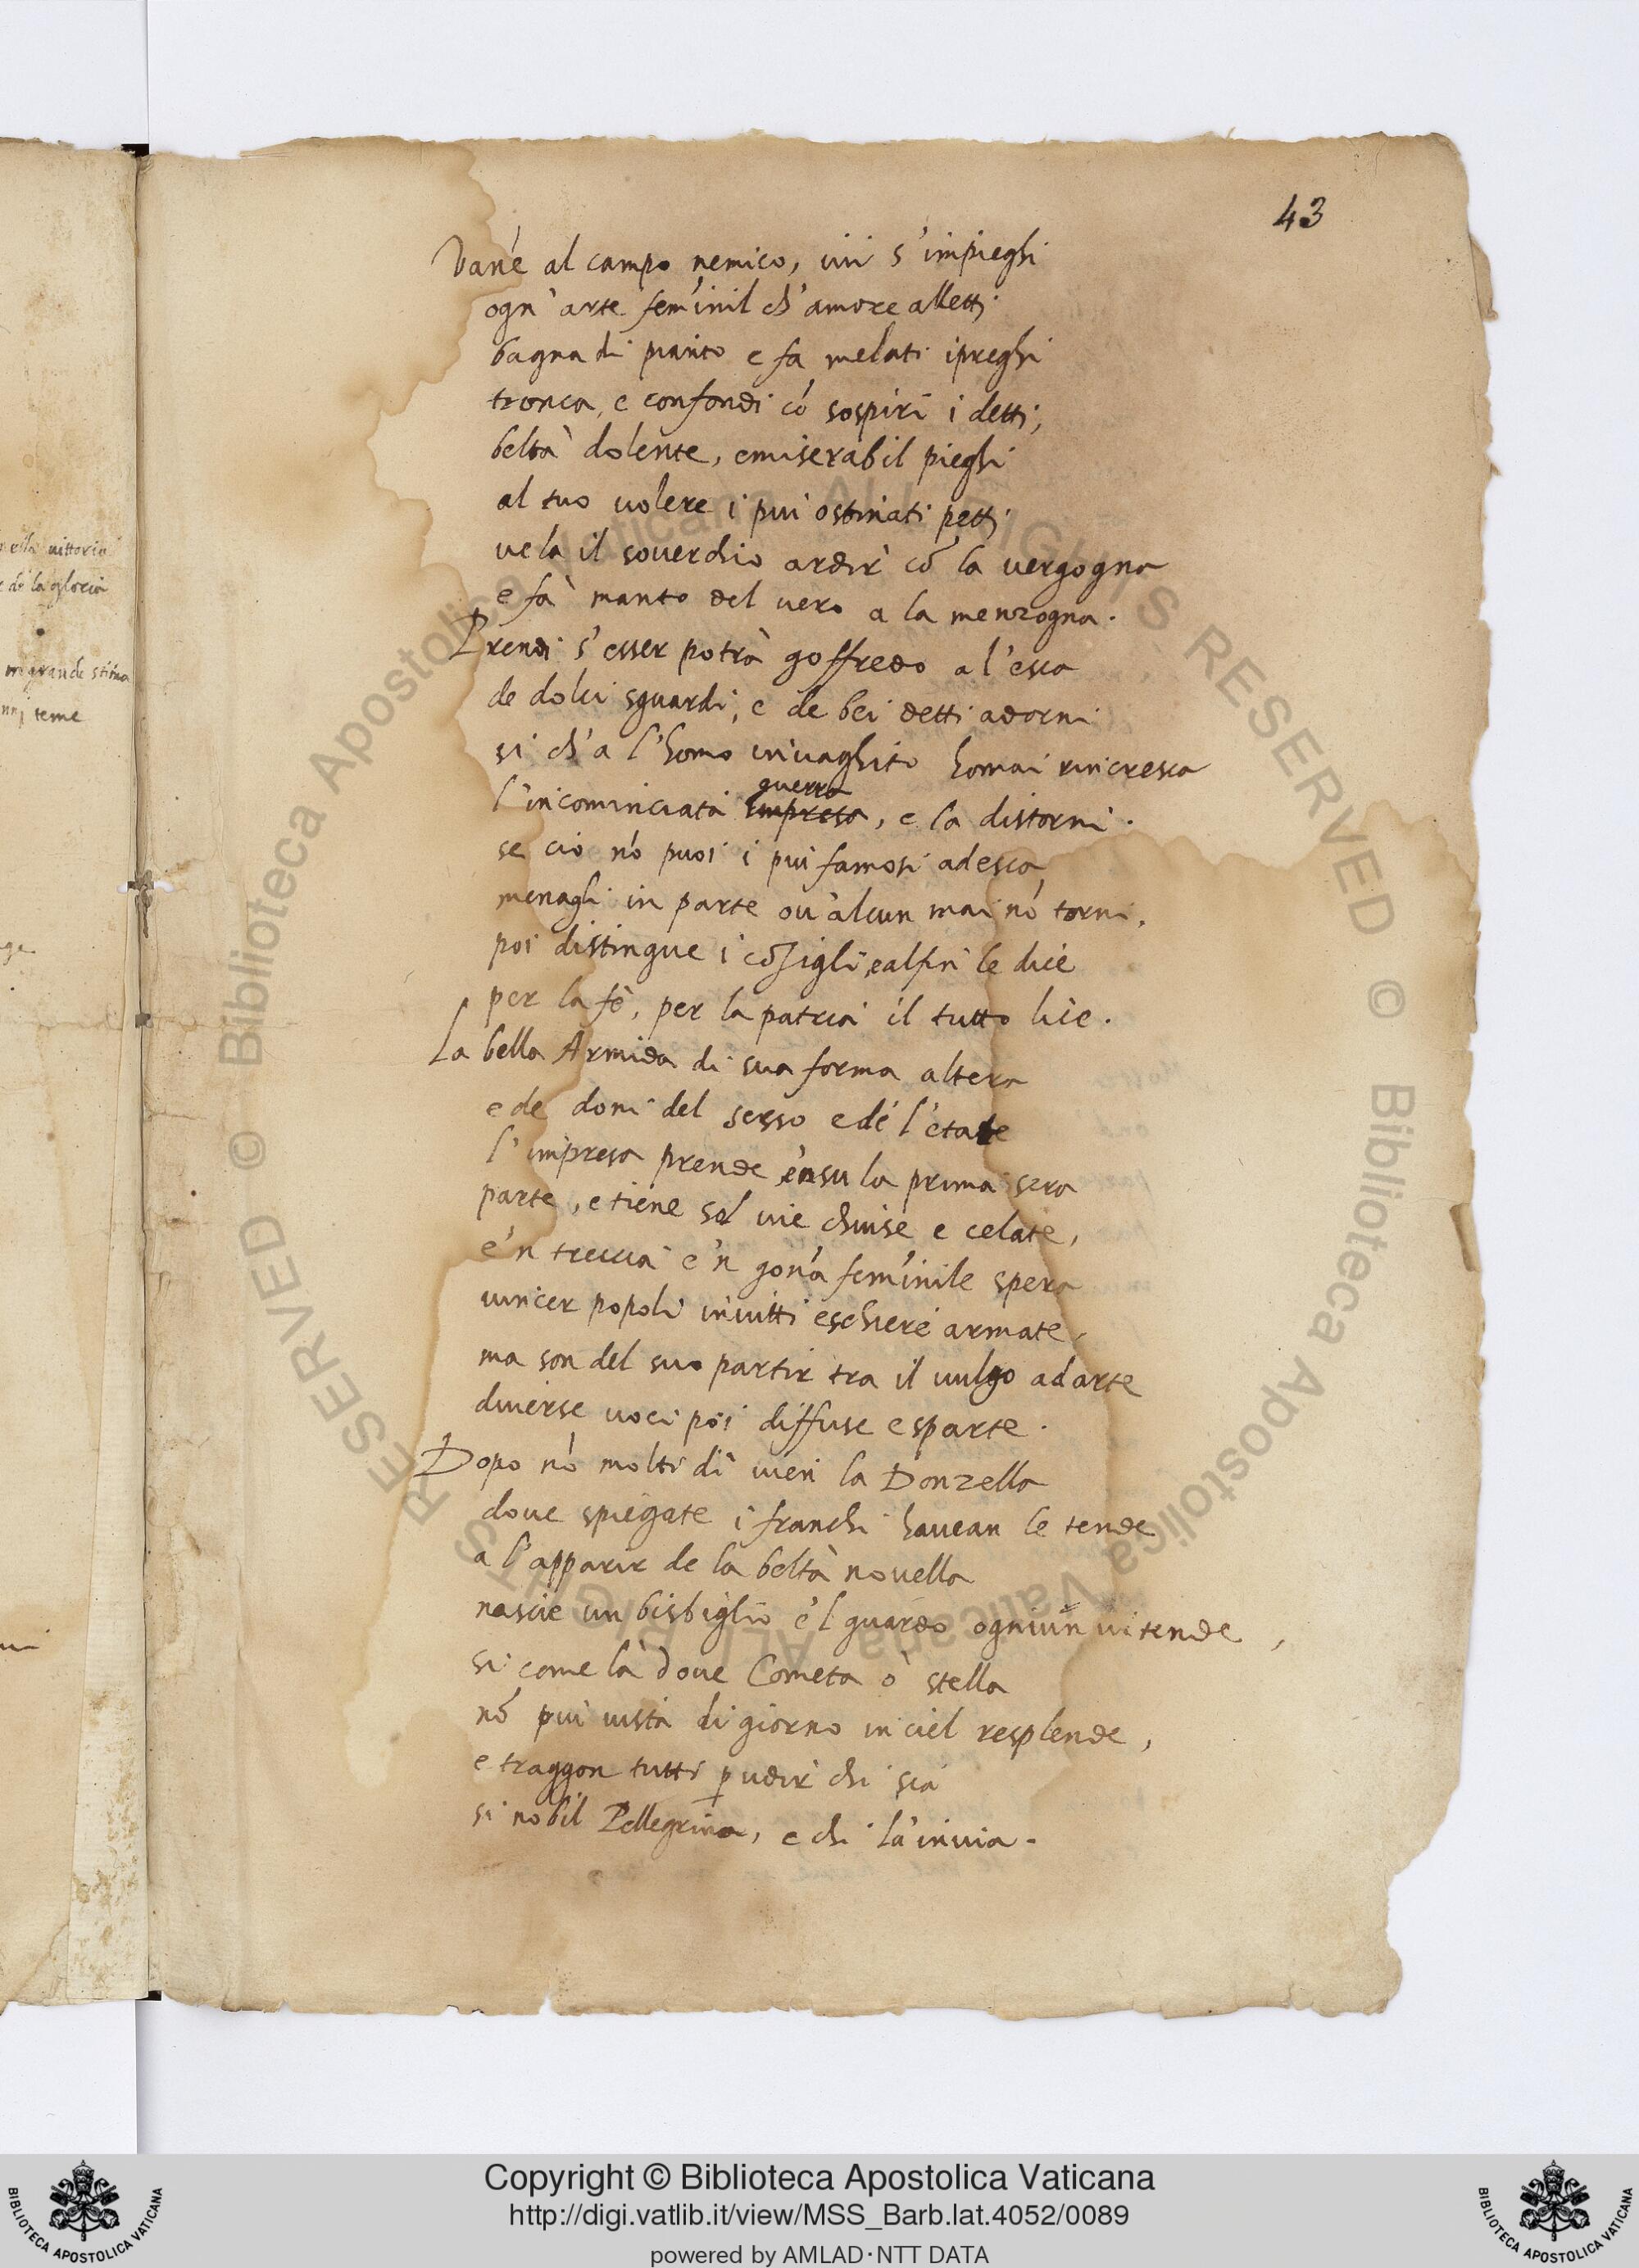 43
nella vittoria
e de la gloria
in grande stima
teme
Vanè al campo nemico, ivi s'impieghi
ogn'arte feminil ch'amore alletti
bagna di pianto e fa melati i preghi
tronca, e confondi cō sospiri i detti;
beltà dolente, e miserabil pieghi
al tuo volere i più ostinati petti
vela il soverchio ardir cō la vergogna
e fà manto del vero a la menzogna.
Prendi s'esser potrà goffredo a l'esca
de dolci sguardi, e de bei detti adorni
si ch'a l'homo invaghito homai rincresca
guerra
l'incominciata impresa, e la distorni.
se ciò nō puoi i più famosi adesca
menagli in parte ov'alcun mai nō torni.
poi distingue i cōsigli, e alfin le dice
per la fè, per la patria il tutto lice.
La bella Armida di sua forma altera
e de doni del sesso e de l'etate
l'impresa prende, e'nsu la prima sera
parte, e tiene sol vie chiuse e celate,
e'n treccia e'n gōna feminile spera
vincer popoli invitti e schiere armate,
ma son del suo partir tra il vulgo ad arte
diverse voci poi diffuse e sparte.
Dopo nō molti dì vien la Donzella
dove spiegate i franchi havean le tende
a l'apparir de la beltà novella
nascie un bisbiglio e'l guardo ogniun vi tende,
si come là dove Cometa ò stella
nō più vista di giorno in ciel resplende,
e traggon tutti ꝑ udir chi sia
si nobil Pellegrina, e chi la invia.
© Biblioteca Apostolica Vaticana ALL RIGHTS RESERVED © Biblioteca Apostolica Vaticana ALL RIGHTS RESERVED
BIBLIOTECA APOSTOLICA VATICANA
Copyright © Biblioteca Apostolica Vaticana
http://digi.vatlib.it/view/MSS_Barb.lat.4052/0089
powered by AMLAD·NTT DATA
BIBLIOTECA APOSTOLICA VATICANA